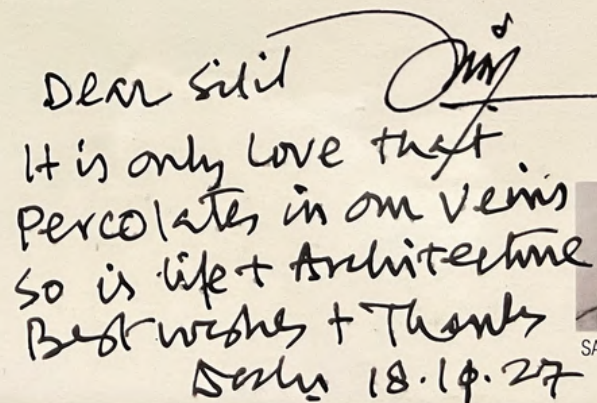 Dear
It is only Love that
Percolates in our Veins
so is life + Architecture
Best wishes + Thanks
SA